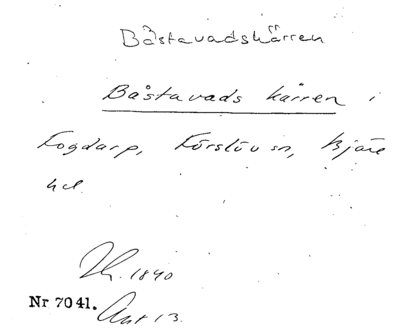 Båstavadskärren
Båstavads kärren i
Fogdarp, Förslöv sn, Bjäre
hd.
1840
Nr 7041. Akt 13.